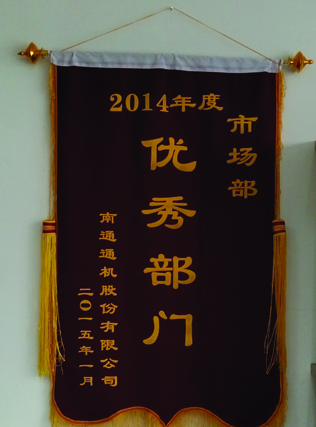 市场部
2014年度
优秀部门
南通通机股份有限公司
二〇一五年一月